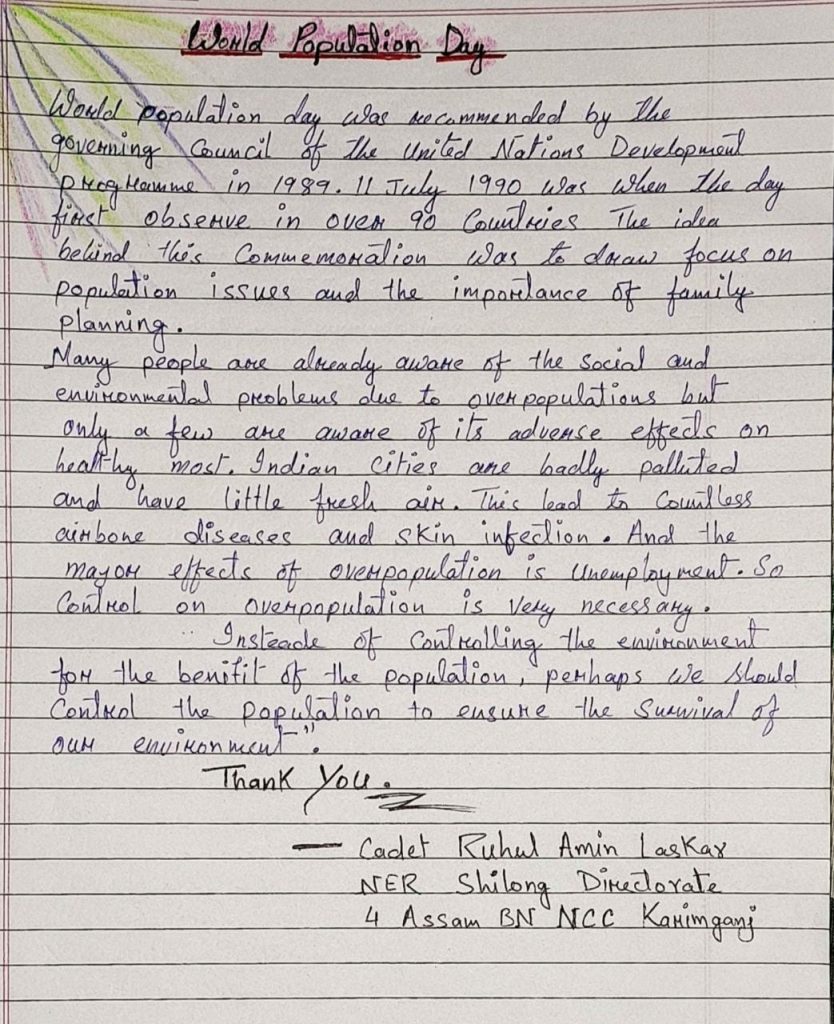 World Population Day
World population day was recommended by the
governing Council of the United Nations Development
programme in 1989. 11 July 1990 was when the day
first observe in over 90 Countries The idea
behind this Commemoration was to draw focus on
population issues and the importance of family
planning.
Many people are already aware of the social and
environmental problems due to overpopulations but
only a few are aware of its adverse effects on
healthy most. Indian cities are badly polluted
and have little fresh air. This lead to Countless
airbone diseases and skin infection. And the
mayor effects of overpopulation is unemployment. So
Control on overpopulation is very necessary.
" Insteade of Controlling the environment
for the benifit of the population, perhaps we should
Control the population to ensure the Survival of
our environment".
Thank You.
— Cadet Ruhul Amin Laskar
NER Shilong Directorate
4 Assam BN NCC Karimganj